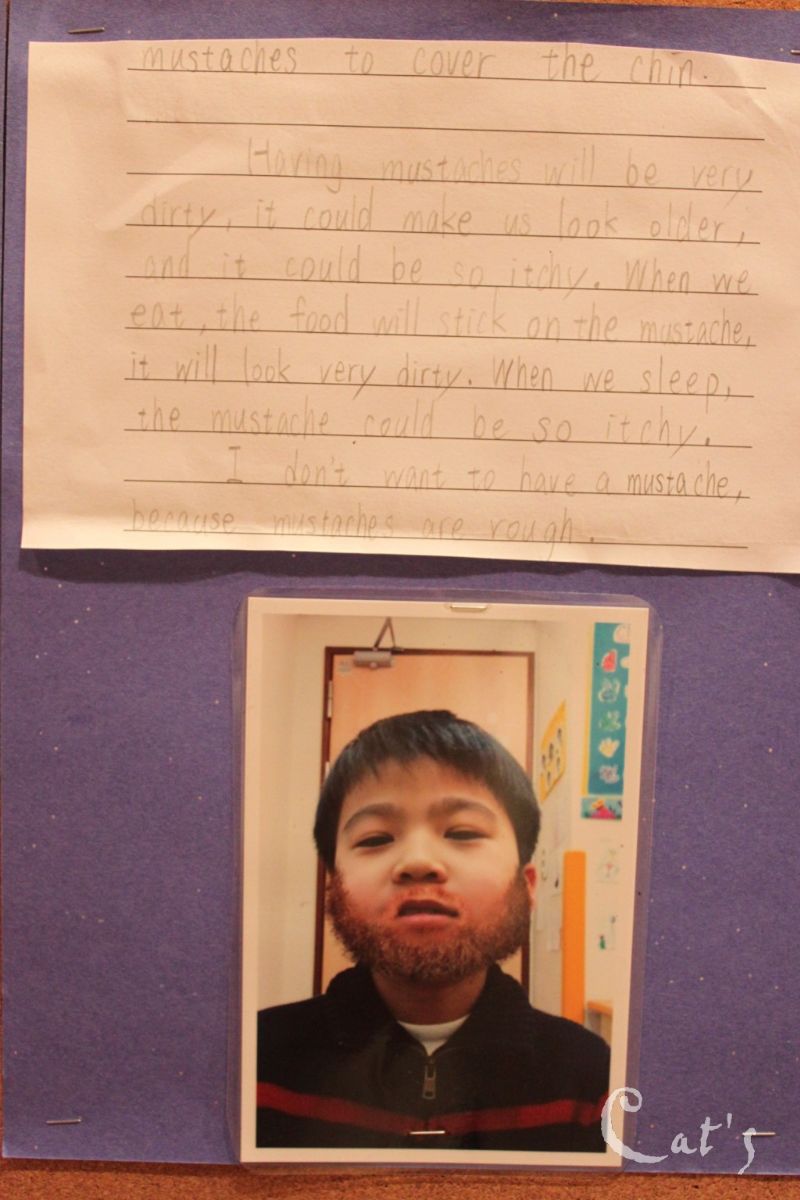 mustaches to cover the chin.
Having mustaches will be very
dirty, it could make us look older,
and it could be so itchy. When we
eat, the food will stick on the mustache,
it will look very dirty. When we sleep,
the mustache could be so itchy.
I don't want to have a mustache,
because mustaches are rough.
Cat's